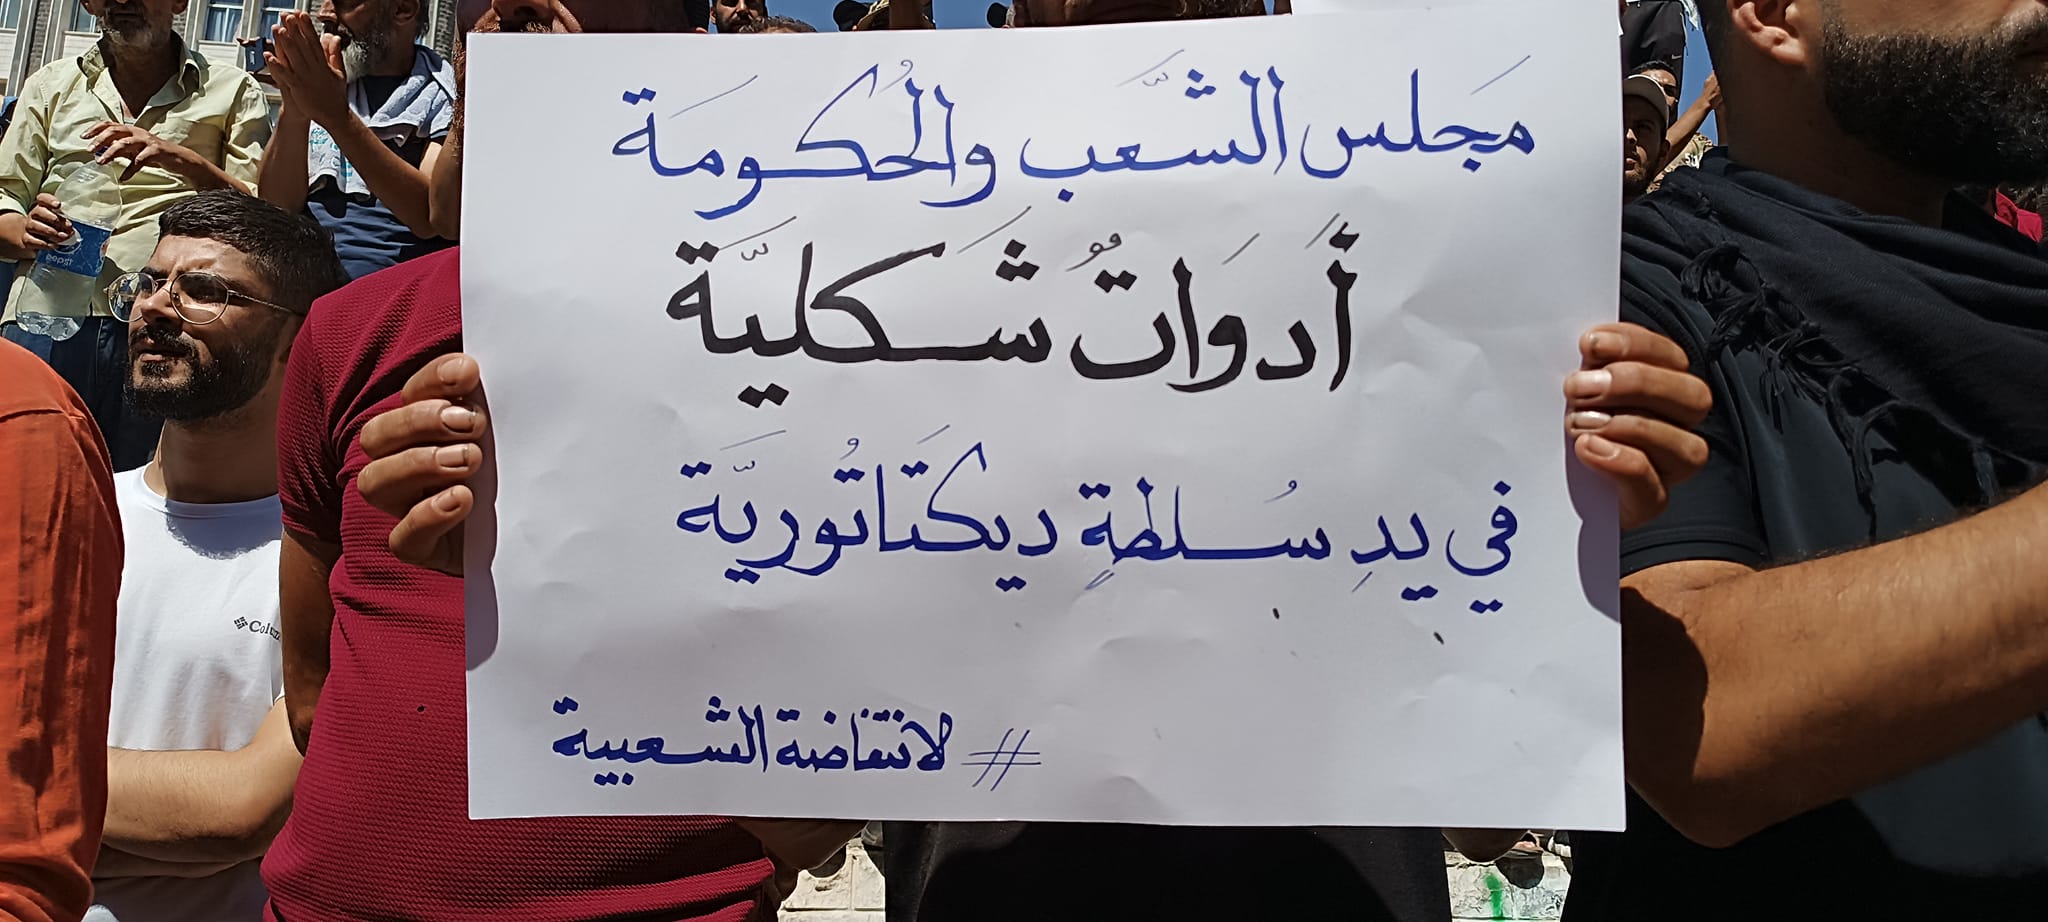 مَجلس الشَّعب والحُكومَة
أَدوَاتٌ شَكليَّة
في يدِ سُلطةٍ ديكتَاتُوريَّة
# لانتفاضة الشعبية
pepsi
Colum